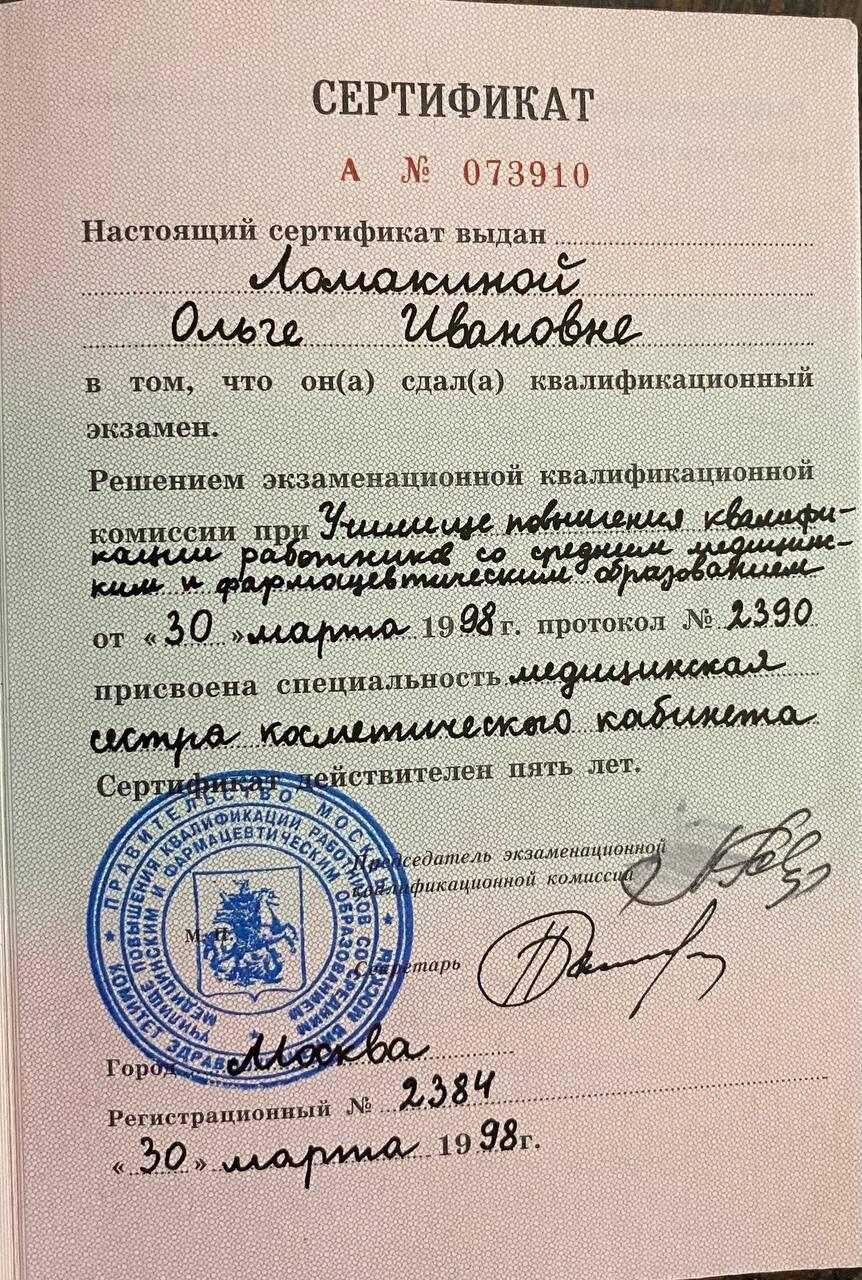 СЕРТИФИКАТ
А № 073910
Настоящий сертификат выдан
Ломакиной
Ольге Ивановне
в том, что он(а) сдал(а) квалификационный
экзамен.
Решением экзаменационной квалификационной
комиссии при Училище повышения квалифи-
кации работников со средним медицинс-
ким и фармацевтическим образованием
от «30» марта 1998г. протокол № 2390
присвоена специальность медицинская
сестра косметического кабинета
Сертификат действителен пять лет.
Председатель экзаменационной
квалификационной комиссии
М. П.
Секретарь
ПРАВИТЕЛЬСТВО МОСКВЫ
КОМИТЕТ ЗДРАВ
УЧИЛИЩЕ ПОВЫШЕНИЯ КВАЛИФИКАЦИИ РАБОТНИКОВ СО СРЕДНИМ
МЕДИЦИНСКИМ И ФАРМАЦЕВТИЧЕСКИМ ОБРАЗОВАНИЕМ
Город Москва
Регистрационный № 2384
«30» марта 1998г.